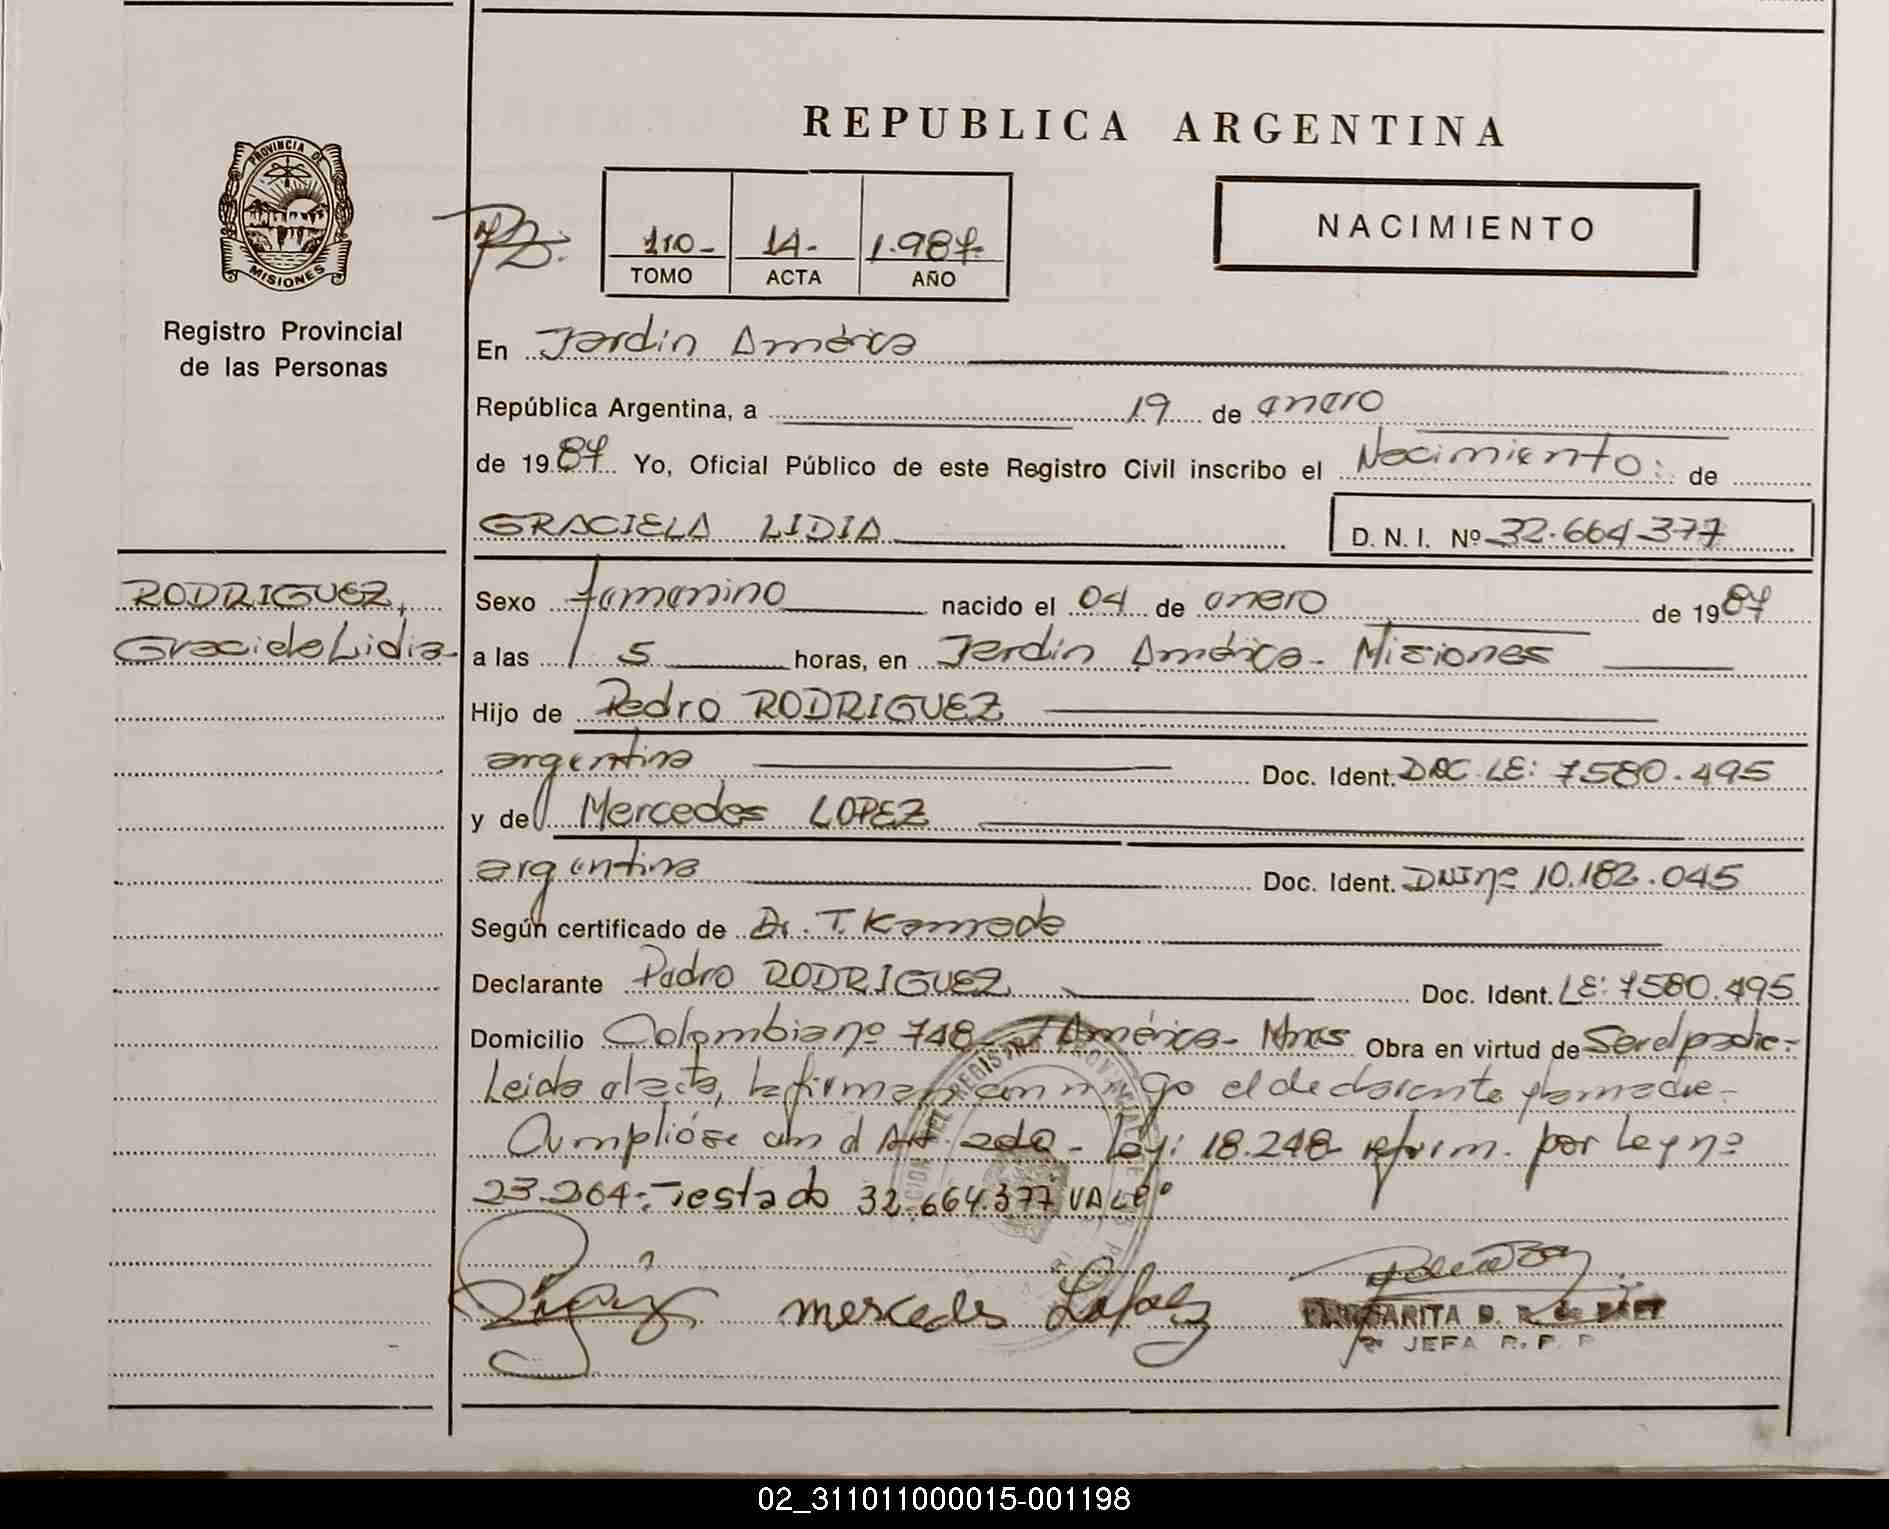 REPUBLICA ARGENTINA
PROVINCIA DE
MISIONES
Registro Provincial
de las Personas
110- 14- 1.987-
TOMO ACTA AÑO
NACIMIENTO
En Jardín América
República Argentina, a 19 de enero
de 1987 Yo, Oficial Público de este Registro Civil inscribo el Nacimiento: de
GRACIELA LIDIA D. N. I. Nº 32.664.377
RODRIGUEZ,
Graciela Lidia-
Sexo femenino nacido el 04 de enero de 1987
a las 5 horas, en Jardín América- Misiones
Hijo de Pedro RODRIGUEZ
argentina Doc. Ident. DOC. LE: 7580.495
y de Mercedes LOPEZ
argentina Doc. Ident. DNI nº 10.182.045
Según certificado de Dr. T. Kamada
Declarante Pedro RODRIGUEZ Doc. Ident. LE: 7580.495
Domicilio Colombia nº 748- J América- Mnes Obra en virtud de Ser el padre-
Leida el acta, la firman conmigo el declarante y la madre-
Cumplióse con el Art. 2do- Ley: 18.248 reform. por Ley nº
23.264- Testado 32.664.377 VALE
mercedes
MARGARITA D. R. de BAEZ
JEFA R. P. P
02_311011000015-001198